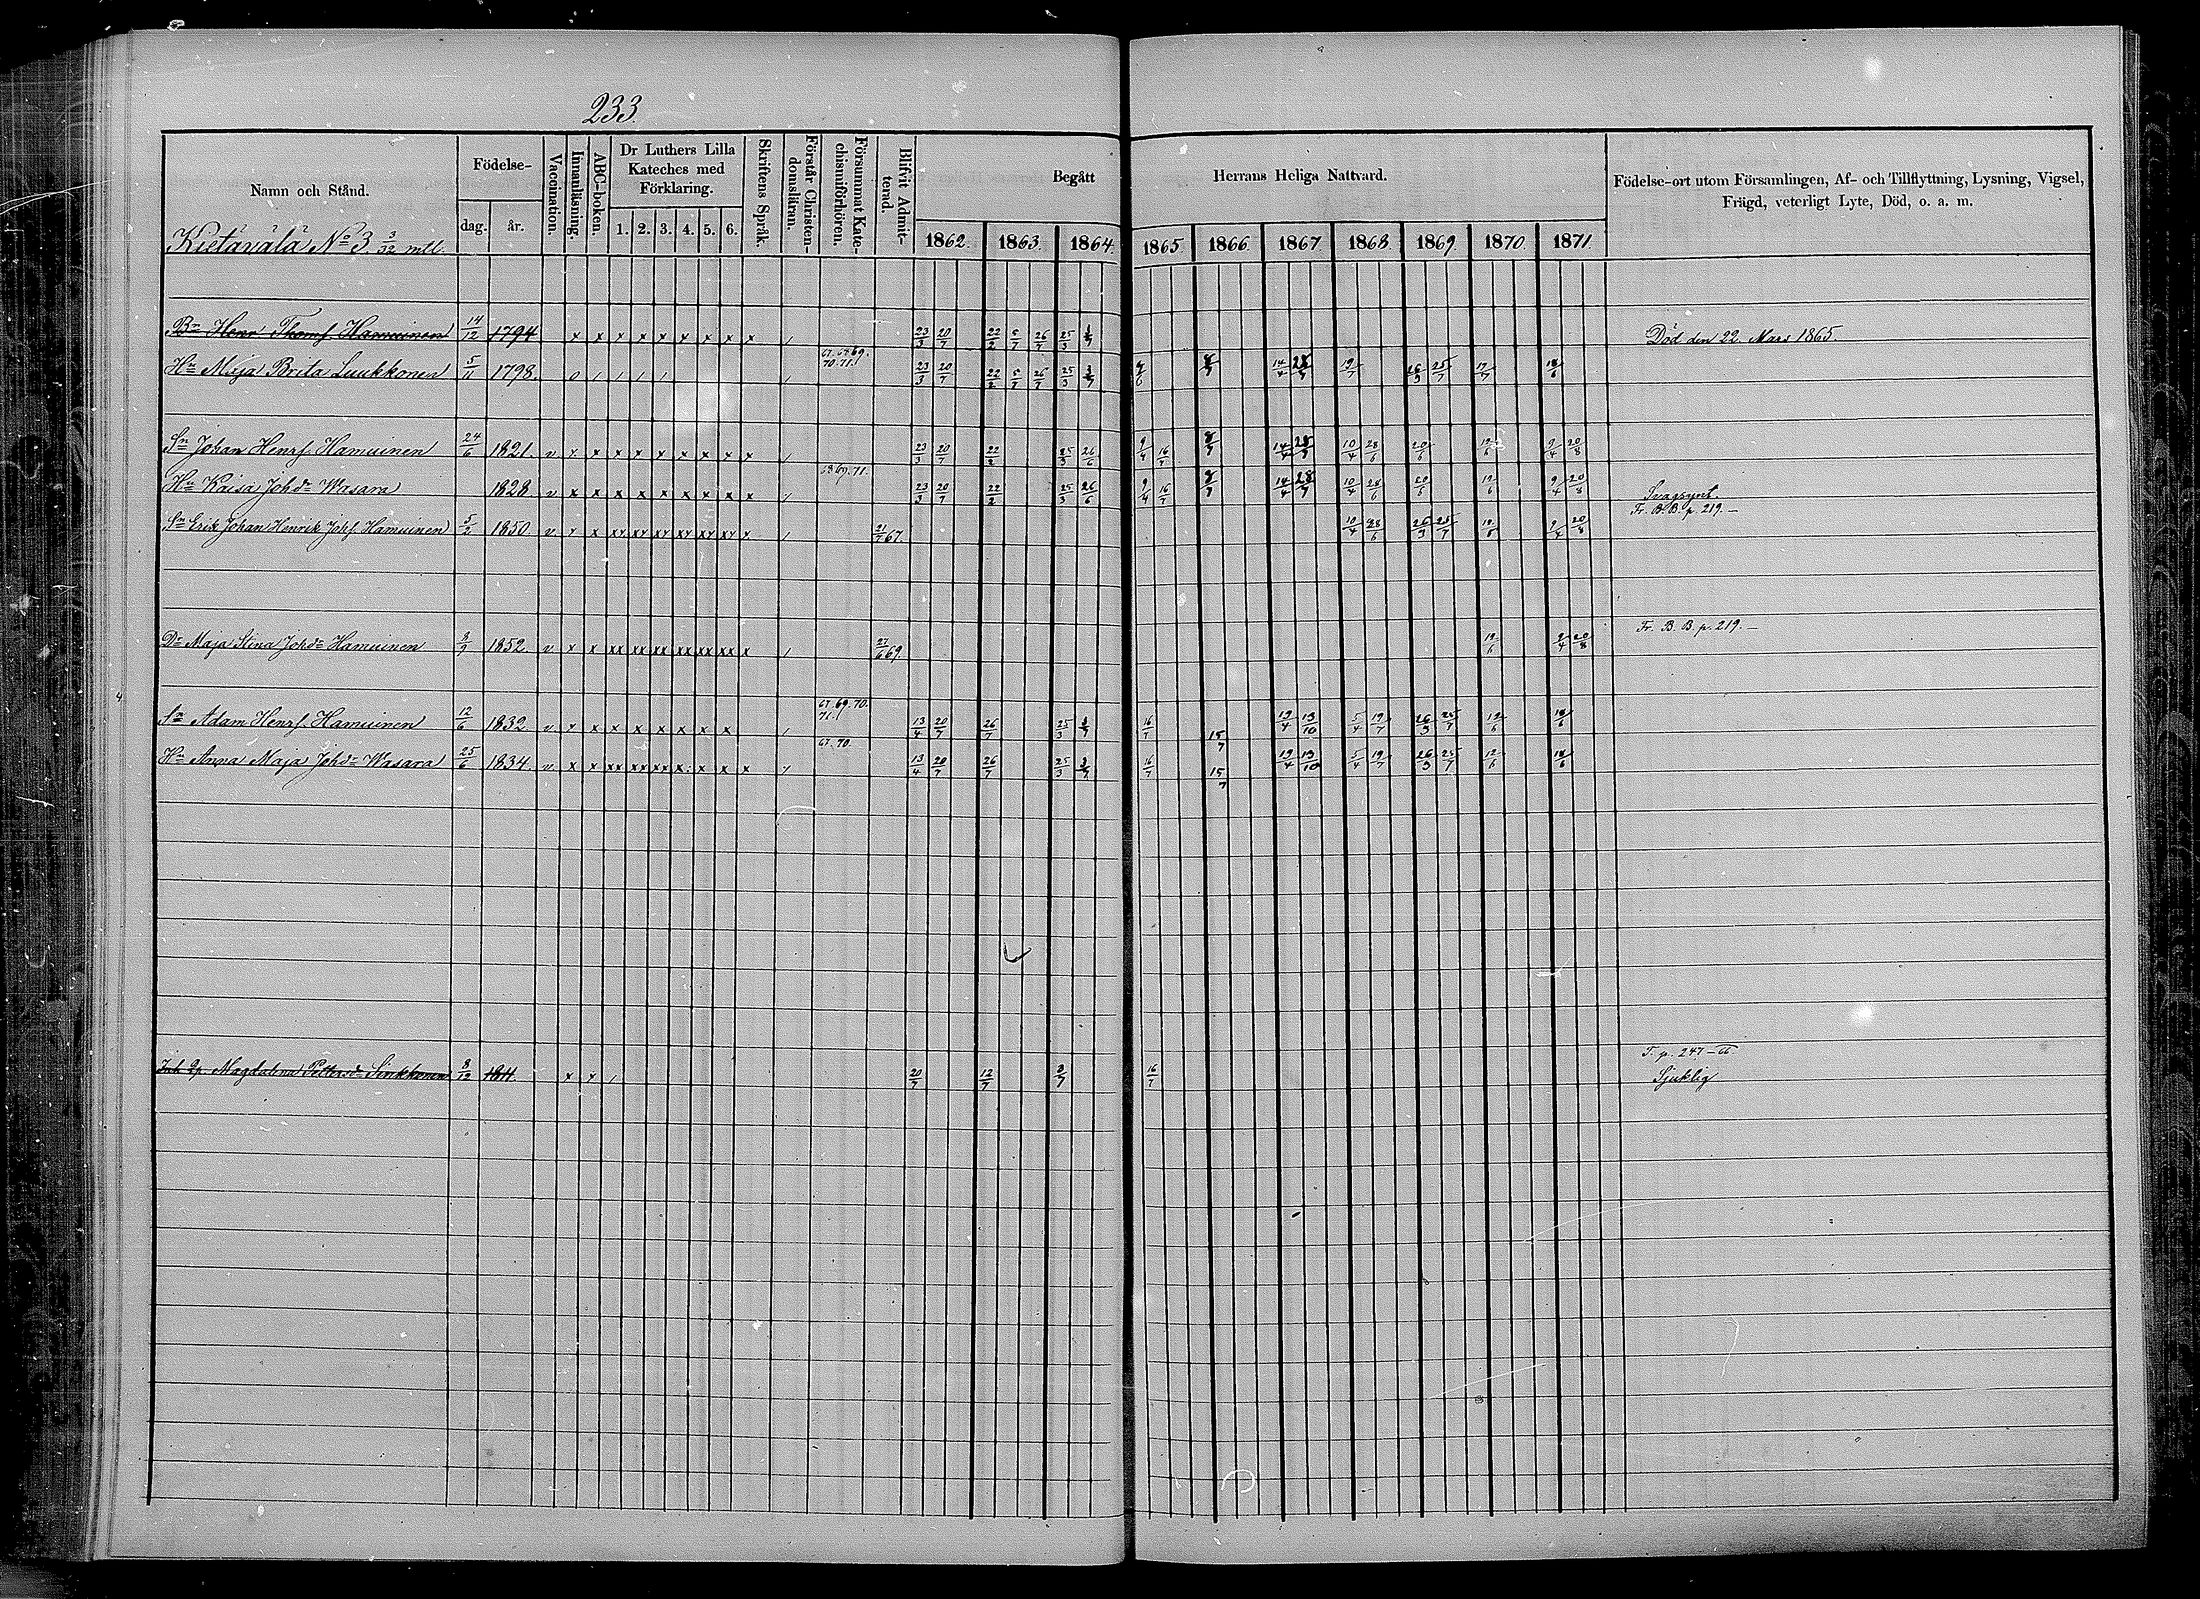 233.
Namn och Stånd.
Födelse-
dag.
år.
Vaccination.
Innanläsning.
ABC-boken.
Dr Luthers Lilla
Kateches med
Förklaring.
1. 2. 3. 4. 5. 6.
Skriftens Språk.
Förstår Christen-
domsläran.
Försummat Kate-
chismiförhören.
Blifvit Admit-
terad.
Begått Herrans Heliga Nattvard.
1862. 1863. 1864. 1865. 1866. 1867. 1868. 1869. 1870. 1871.
Födelse-ort utom Församlingen, Af- och Tillflyttning, Lysning, Vigsel,
Frägd, veterligt Lyte, Död, o. a. m.
Kietävälä No 3. 3/32 mtl.
Bn Henr Thomss. Hamuinen 14/12 1794 x x x x x x x x x / 23/3 20/7 22/2 5/7 26/7 25/3 Död den 22. Mars 1865.
67. 68. 69.
70. 71.
Hu Maja Brita Luukkonen 5/11 1798. 0 / / / / / 23/3 20/7 22/2 5/7 26/7 25/3 3/7 14/4 28/7 19/7 26/3 25/7 17/7 18/6
Sn Johan Henrs. Hamuinen 24/6 1821. v x x x x x x x x x / 23/3 20/7 22/2 25/3 26/6 9/4 16/7 14/4 28/7 10/4 28/6 20/6 12/6 9/4 20/8
68. 69. 71.
Hu Kaisa Johdr Wasara 1828 v x x x x x x x x x / 23/3 20/7 22/2 25/3 26/6 9/4 16/7 14/4 28/7 10/4 28/6 20/6 12/6 9/4 20/8 Svagsynt.
Fr. B. B. p. 219. —
Sn Erik Johan Henrik Johs. Hamuinen 5/2 1850. v x x xx xx xx xx xx xx x / 21/7 67. 10/4 28/6 26/3 25/7 12/6 9/4 20/8
Fr. B. B. p. 219. —
Dr Maja Stina Johdr Hamuinen 8/9 1852. v x x xx xx xx xx xx xx x / 27/6 69. 12/6 9/4 20/8
67. 69. 70.
71.
Sn Adam Henrs. Hamuinen 12/6 1832 v x x x x x x x x / 13/4 20/7 26/7 25/3 3/7 16/7 15/7 19/4 13/10 5/4 19/7 26/3 25/7 12/6 18/6
67. 70.
Hu Anna Maja Johdr Wasara 25/6 1834. v x x xx xx xx x x x x 13/4 20/7 26/7 25/3 3/7 16/7 15/7 19/4 13/10 5/4 19/7 26/3 25/7 12/6 18/6
T. p. 247
Inh. Magdalena Pettersdr Sinkkonen 8/12 1811. x x / 20/7 12/7 3/7 16/7 Sjuklig